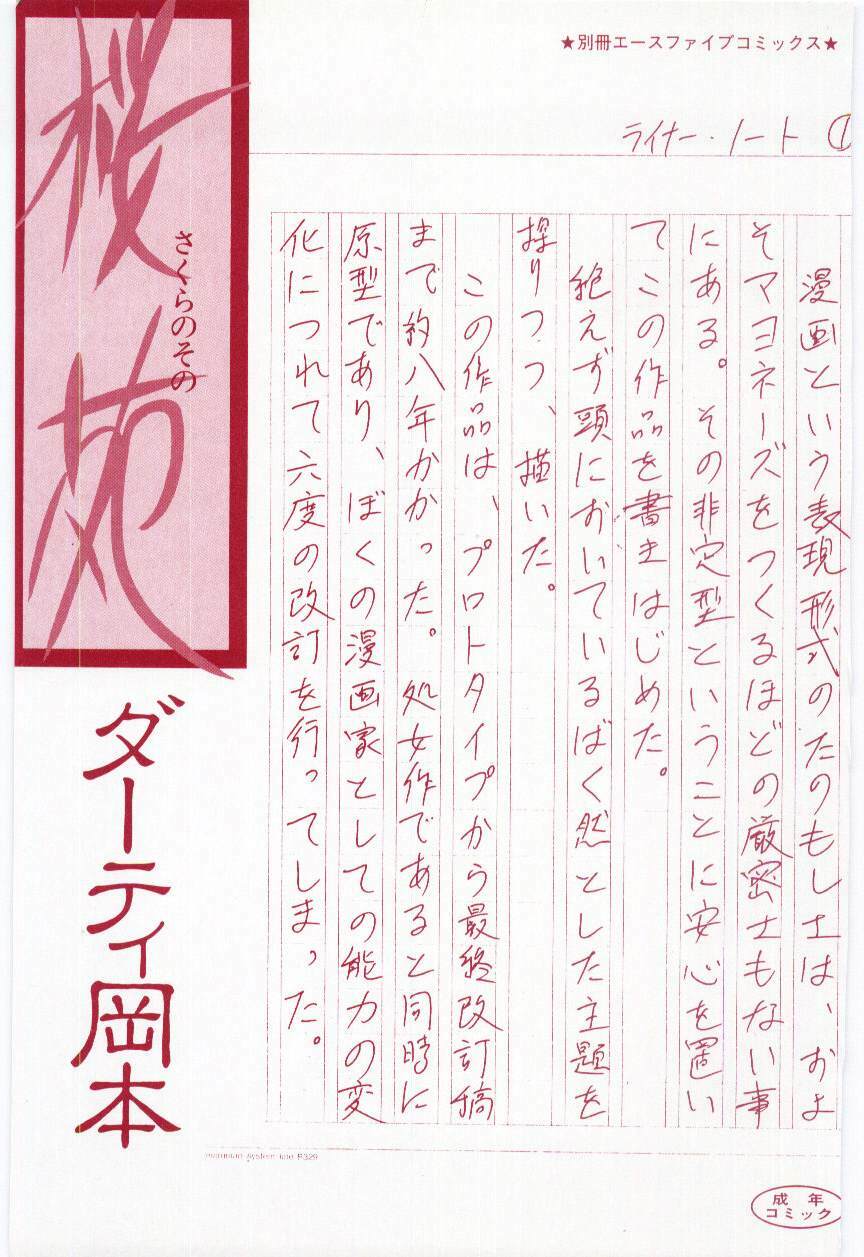 ★別冊エースファイブコミックス★
ライナー・ノート ①
漫画という表現形式のたのもしさは、およ
そマヨネーズをつくるほどの厳密さもない事
にある。その非定型ということに安心を置い
てこの作品を書きはじめた。
絶えず頭においているばく然とした主題を
探りつつ、描いた。
この作品は、プロトタイプから最終改訂稿
まで約八年かかった。処女作であると同時に
原型であり、ぼくの漫画家としての能力の変
化につれて六度の改訂を行ってしまった。
桜苑
さくらのその
ダーティ岡本
成年
コミック